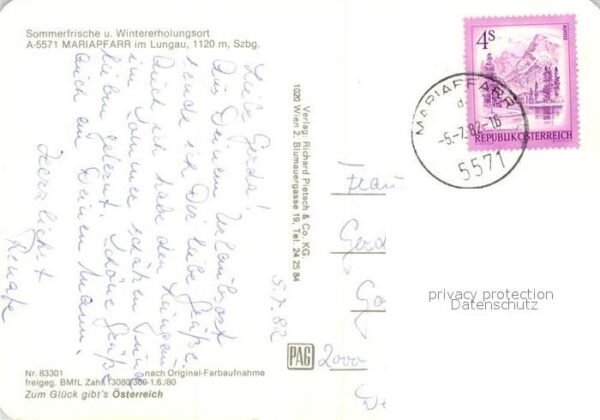 Sommerfrische u. Wintererholungsort
A-5571 MARIAPFARR im Lungau, 1120 m, Szbg.
5.7.82
Liebe Gerda!
Aus Deinem Urlaubsort
sende ich Dir liebe Grüße.
Auch ich habe den Lungau
im Sommer schätzen und
lieben gelernt. Schöne Grüße
auch an Deinen Mann.
Herzlichst
Renate
Nr. 83301 nach Original-Farbaufnahme
freigeg. BMfL Zahl 13080/360-1.6./80
Zum Glück gibt's Österreich
Verlag: Richard Pietsch & Co. KG.
1020 Wien 2, Blumauergasse 19, Tel. 24 25 84
PAG
4 S
REPUBLIK ÖSTERREICH
MARIAPFARR
-5.-7.82-16
5571
Frau
Gerd
2000
privacy protection
Datenschutz